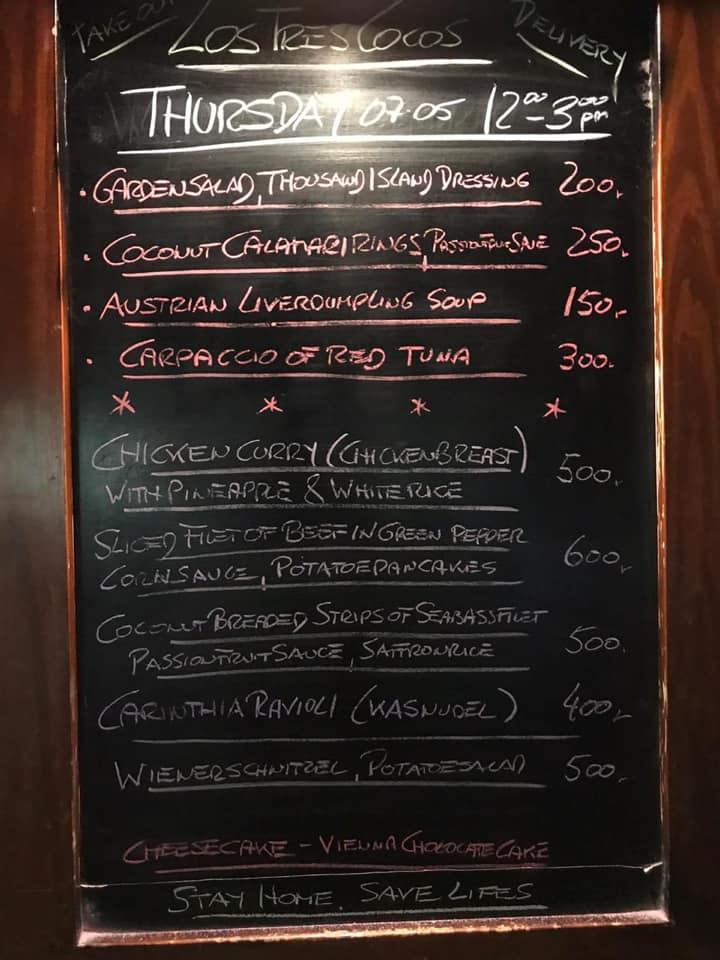 TAKE OUT
LOS TRES COCOS
DELIVERY
THURSDAY 07.05 12⁰⁰-3⁰⁰pm
· GARDENSALAD, THOUSAND ISLAND DRESSING 200,-
· COCONUT CALAMARI RINGS, PASSIONFRUIT 250,-
· AUSTRIAN LIVERDUMPLING SOUP 150,-
· CARPACCIO OF RED TUNA 300.-
* * * *
CHICKEN CURRY (CHICKENBREAST)
WITH PINEAPPLE & WHITE RICE 500,-
SLICED FILET OF BEEF IN GREEN PEPPER
CORN SAUCE, POTATOEPANCAKES 600,-
COCONUT BREADED STRIPS OF SEABASSFILET
PASSIONFRUIT SAUCE, SAFFRONRICE 500.
CARINTHIA RAVIOLI (KASNUDEL) 400,-
WIENERSCHNITZEL, POTATOESALAD 500,-
CHEESECAKE - VIENNA CHOCOLATE CAKE
STAY HOME. SAVE LIFES